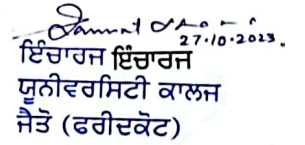 27.10.2023.
ਇੰਚਾਰਜ ਇੰਚਾਰਜ
ਯੂਨੀਵਰਸਿਟੀ ਕਾਲਜ
ਜੈਤੋ (ਫਰੀਦਕੋਟ)